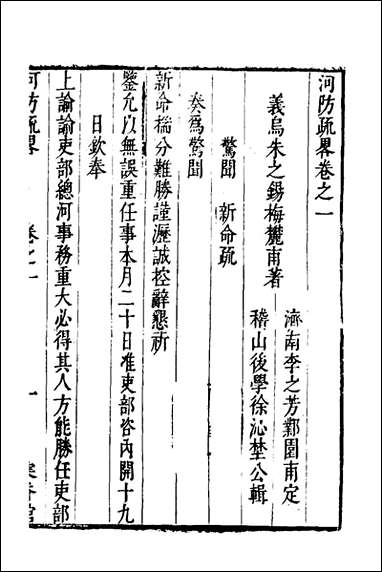 河防疏畧卷之一
義烏朱之錫梅麓甫著
濟南李之芳鄴園甫定
稽山後學徐沁埜公輯
驚聞　新命疏
奏為驚聞
新命揣分難勝謹瀝誠控辭懇祈
鑒允以無誤重任事本月二十日准吏部咨內開十九
日欽奉
上諭諭吏部總河事務重大必得其人方能勝任吏部
河防疏畧　卷之一　一